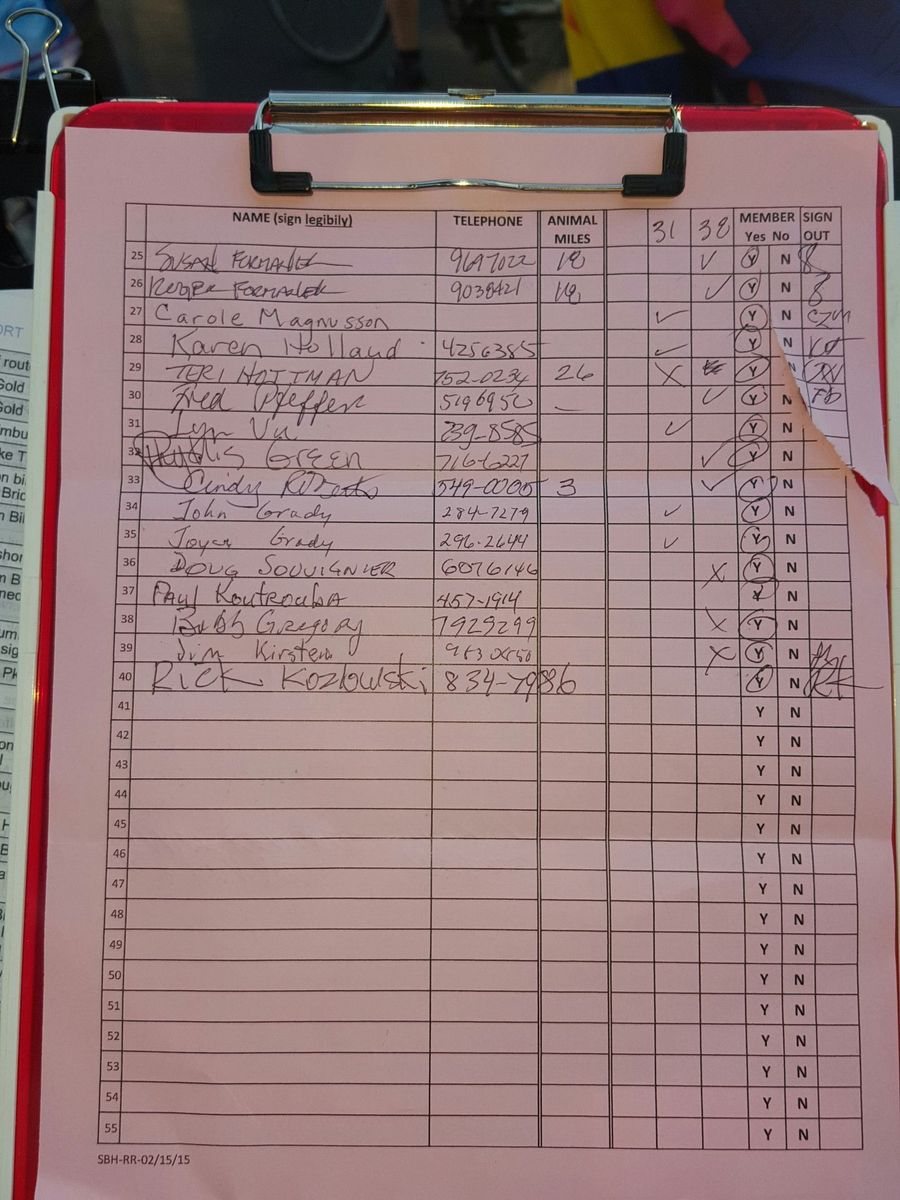 NAME (sign legibily) TELEPHONE ANIMAL MILES 31 38 MEMBER Yes No SIGN OUT
25 SUSAN FORMANEK 9697022 18 ✓ Y N
26 ROGER FORMANEK 9038421 18 ✓ Y N
27 Carole Magnusson ✓ Y N CZM
28 Karen Holland 4256385 ✓ Y N
29 TERI HOITMAN 752-0234 26 X Y N
30 Fred Pfeffer 5196950 ✓ Y N
31 Lyn Vu 239-8585 ✓ Y N
32 Phyllis Green 716-6227 ✓ Y N
33 Cindy 549-0005 3 ✓ Y N
34 John Grady 284-7279 ✓ Y N
35 Joyce Grady 296-2644 ✓ Y N
36 DOUG SOUVIGNIER 6076146 X Y N
37 PAUL KOUTROUBA 457-1914 Y N
38 Gregory 7929299 X Y N
39 Jim Kirsten X Y N
40 Rick Kozlowski 834-7986 Y N RK
41 Y N
42 Y N
43 Y N
44 Y N
45 Y N
46 Y N
47 Y N
48 Y N
49 Y N
50 Y N
51 Y N
52 Y N
53 Y N
54 Y N
55 Y N
SBH-RR-02/15/15